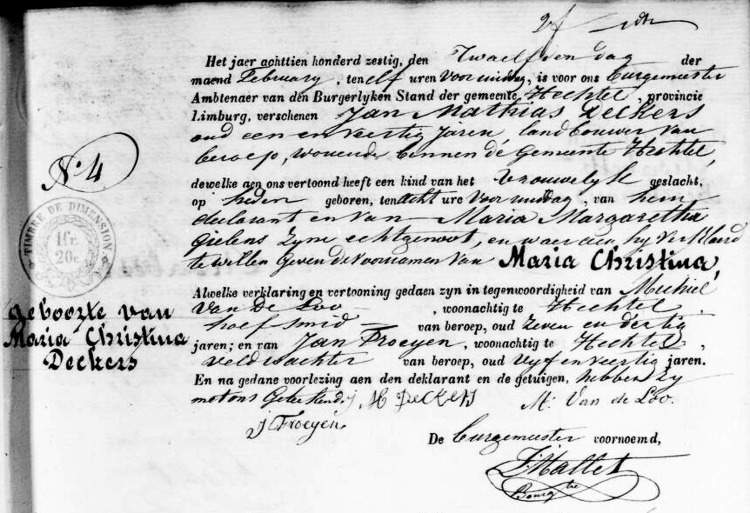 Het jaer achttien honderd zestig, den Twaelfden dag der
maend February, ten elf uren Voormiddag, is voor ons Burgemeester
Ambtenaer van den Burgerlyken Stand der gemeente Hechtel, provincie
Limburg, verschenen Jan Mathias Deckers
oud een en veertig Jaren, landbouwer van
beroep, wonende binnen de Gemeente Hechtel,
dewelke aen ons vertoond heeft een kind van het Vrouwelyk geslacht,
op heden geboren, ten acht ure Voormiddag, van hem
declarant en van Maria Margaretha
Gielens Zyne echtgenoot, en waer aen hy verklaerd
te willen Geven de Voornamen van Maria Christina,
Alwelke verklaring en vertooning gedaen zyn in tegenwoordigheid van Michiel
Van De Loo, woonachtig te Hechtel
hoefsmid van beroep, oud Zeven en dertig
jaren; en van Jan Froeyen, woonachtig te Hechtel,
veldwachter van beroep, oud Vyf en Veertig jaren.
En na gedane voorlezing aen den deklarant en de getuigen, hebben zy
met ons Geteekend. J. M Deckers M. Van de Loo.
J Froeyen
De Burgemeester voornoemd,
J. Hallet
Bourgtre
N.º 4
TIMBRE DE DIMENSION
1fr.
20c.
geboorte van
Maria Christina
Deckers